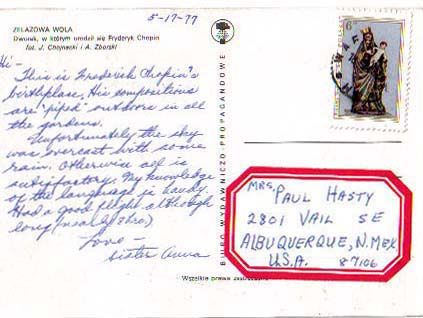 5-17-77
ŻELAZOWA WOLA
Dworek, w którym urodził się Fryderyk Chopin
fot. J. Chojnacki i A. Zborski
Hi-
This is Frederick Chopin's
birthplace. His compositions
are "piped" outdoors in all
the gardens.
Unfortunately the day
was overcast with some
rain. Otherwise all is
satisfactory. My knowledge
of the language is handy.
Had a good flight although
long (near 9 hrs)
Love-
sister Anna
BIURO WYDAWNICZO-PROPAGANDOWE
Wszelkie prawa zastrzeżone
6
MRS. PAUL HASTY
2801 VAIL SE
ALBUQUERQUE, N. MEX.
U.S.A. 87106